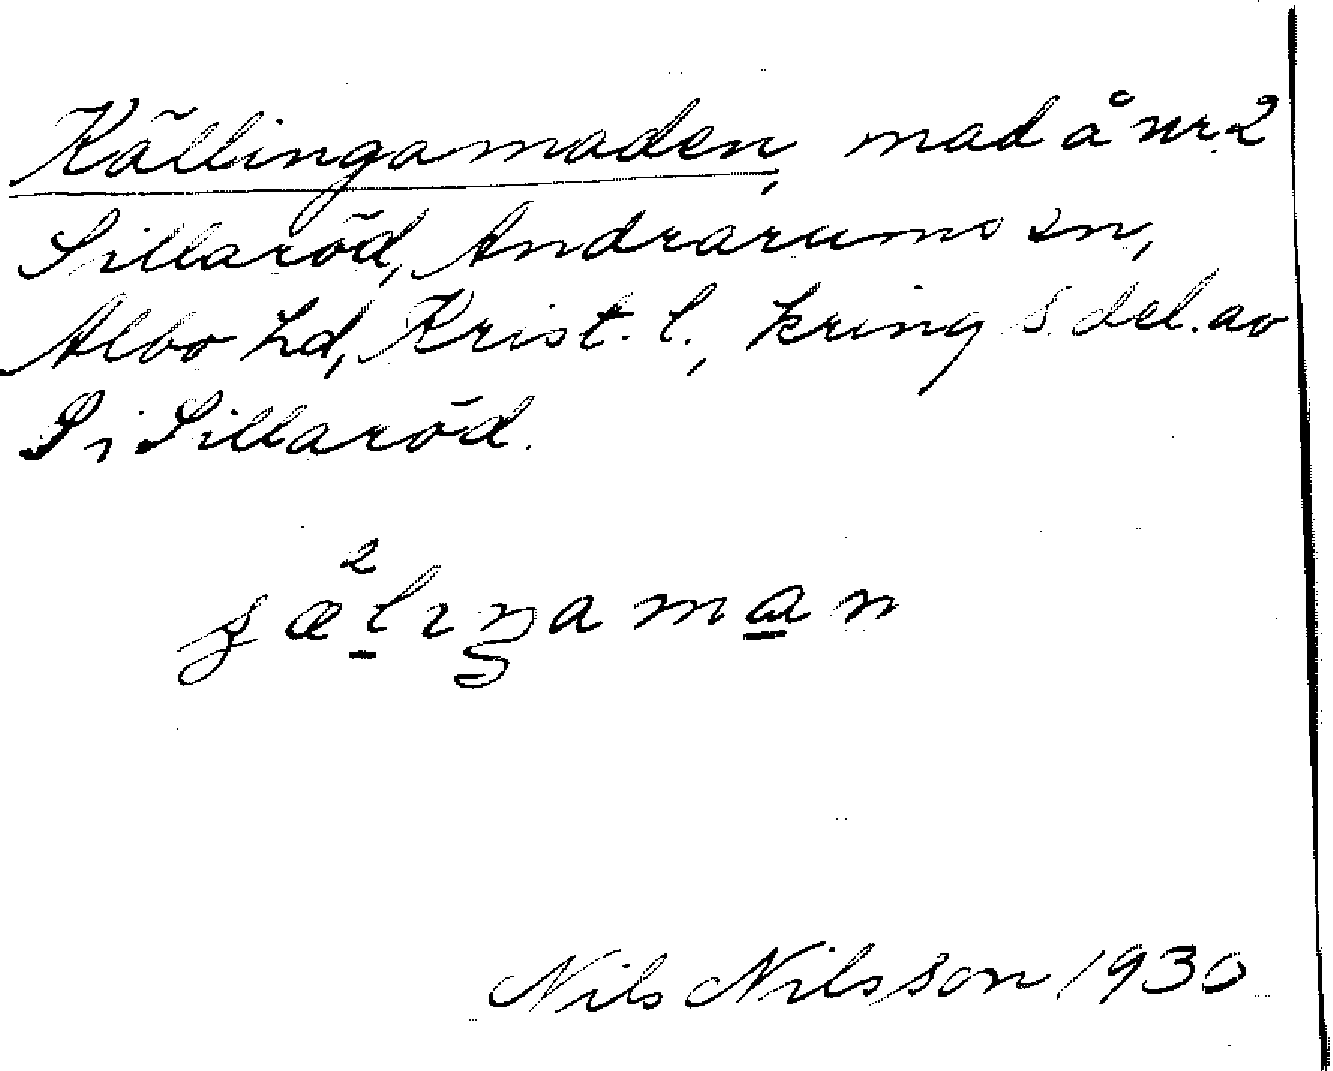 Källingamaden, mad å nr 2
Sillaröd, Andrarums sn,
Albo hd, Krist. l., kring S. del. av
S i Sillaröd.
Nils Nilsson 1930